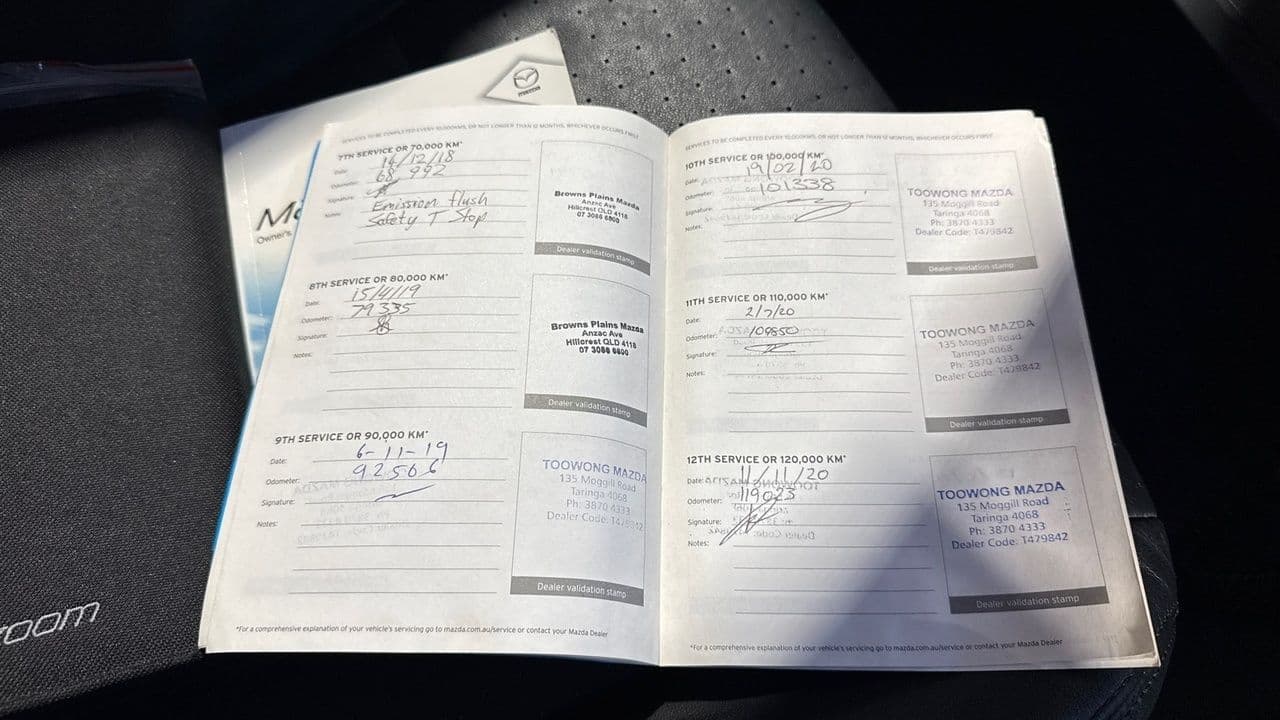 mazda
Owner's
room
SERVICES TO BE COMPLETED EVERY 10,000KMS, OR NOT LONGER THAN 12 MONTHS, WHICHEVER OCCURS FIRST
7TH SERVICE OR 70,000 KM*
Date: 14/12/18
Odometer: 68 992
Signature:
Notes: Emission flush
Safety T Stop
Browns Plains Mazda
Anzac Ave
Hillcrest QLD 4118
07 3086 6800
Dealer validation stamp
8TH SERVICE OR 80,000 KM*
Date: 15/4/19
Odometer: 79335
Signature:
Notes:
Browns Plains Mazda
Anzac Ave
Hillcrest QLD 4118
07 3086 6800
Dealer validation stamp
9TH SERVICE OR 90,000 KM*
Date: 6-11-19
Odometer: 92506
Signature:
Notes:
TOOWONG MAZDA
135 Moggill Road
Taringa 4068
Ph: 3870 4333
Dealer Code: T479842
Dealer validation stamp
*For a comprehensive explanation of your vehicle's servicing go to mazda.com.au/service or contact your Mazda Dealer
SERVICES TO BE COMPLETED EVERY 10,000KMS, OR NOT LONGER THAN 12 MONTHS, WHICHEVER OCCURS FIRST
10TH SERVICE OR 100,000 KM*
Date: 19/02/20
Odometer: 101338
Signature:
Notes:
TOOWONG MAZDA
135 Moggill Road
Taringa 4068
Ph: 3870 4333
Dealer Code: T479842
Dealer validation stamp
11TH SERVICE OR 110,000 KM*
Date: 2/7/20
Odometer: 109850
Signature:
Notes:
TOOWONG MAZDA
135 Moggill Road
Taringa 4068
Ph: 3870 4333
Dealer Code: T479842
Dealer validation stamp
12TH SERVICE OR 120,000 KM*
Date: 11/11/20
Odometer: 119023
Signature:
Notes:
TOOWONG MAZDA
135 Moggill Road
Taringa 4068
Ph: 3870 4333
Dealer Code: T479842
Dealer validation stamp
*For a comprehensive explanation of your vehicle's servicing go to mazda.com.au/service or contact your Mazda Dealer